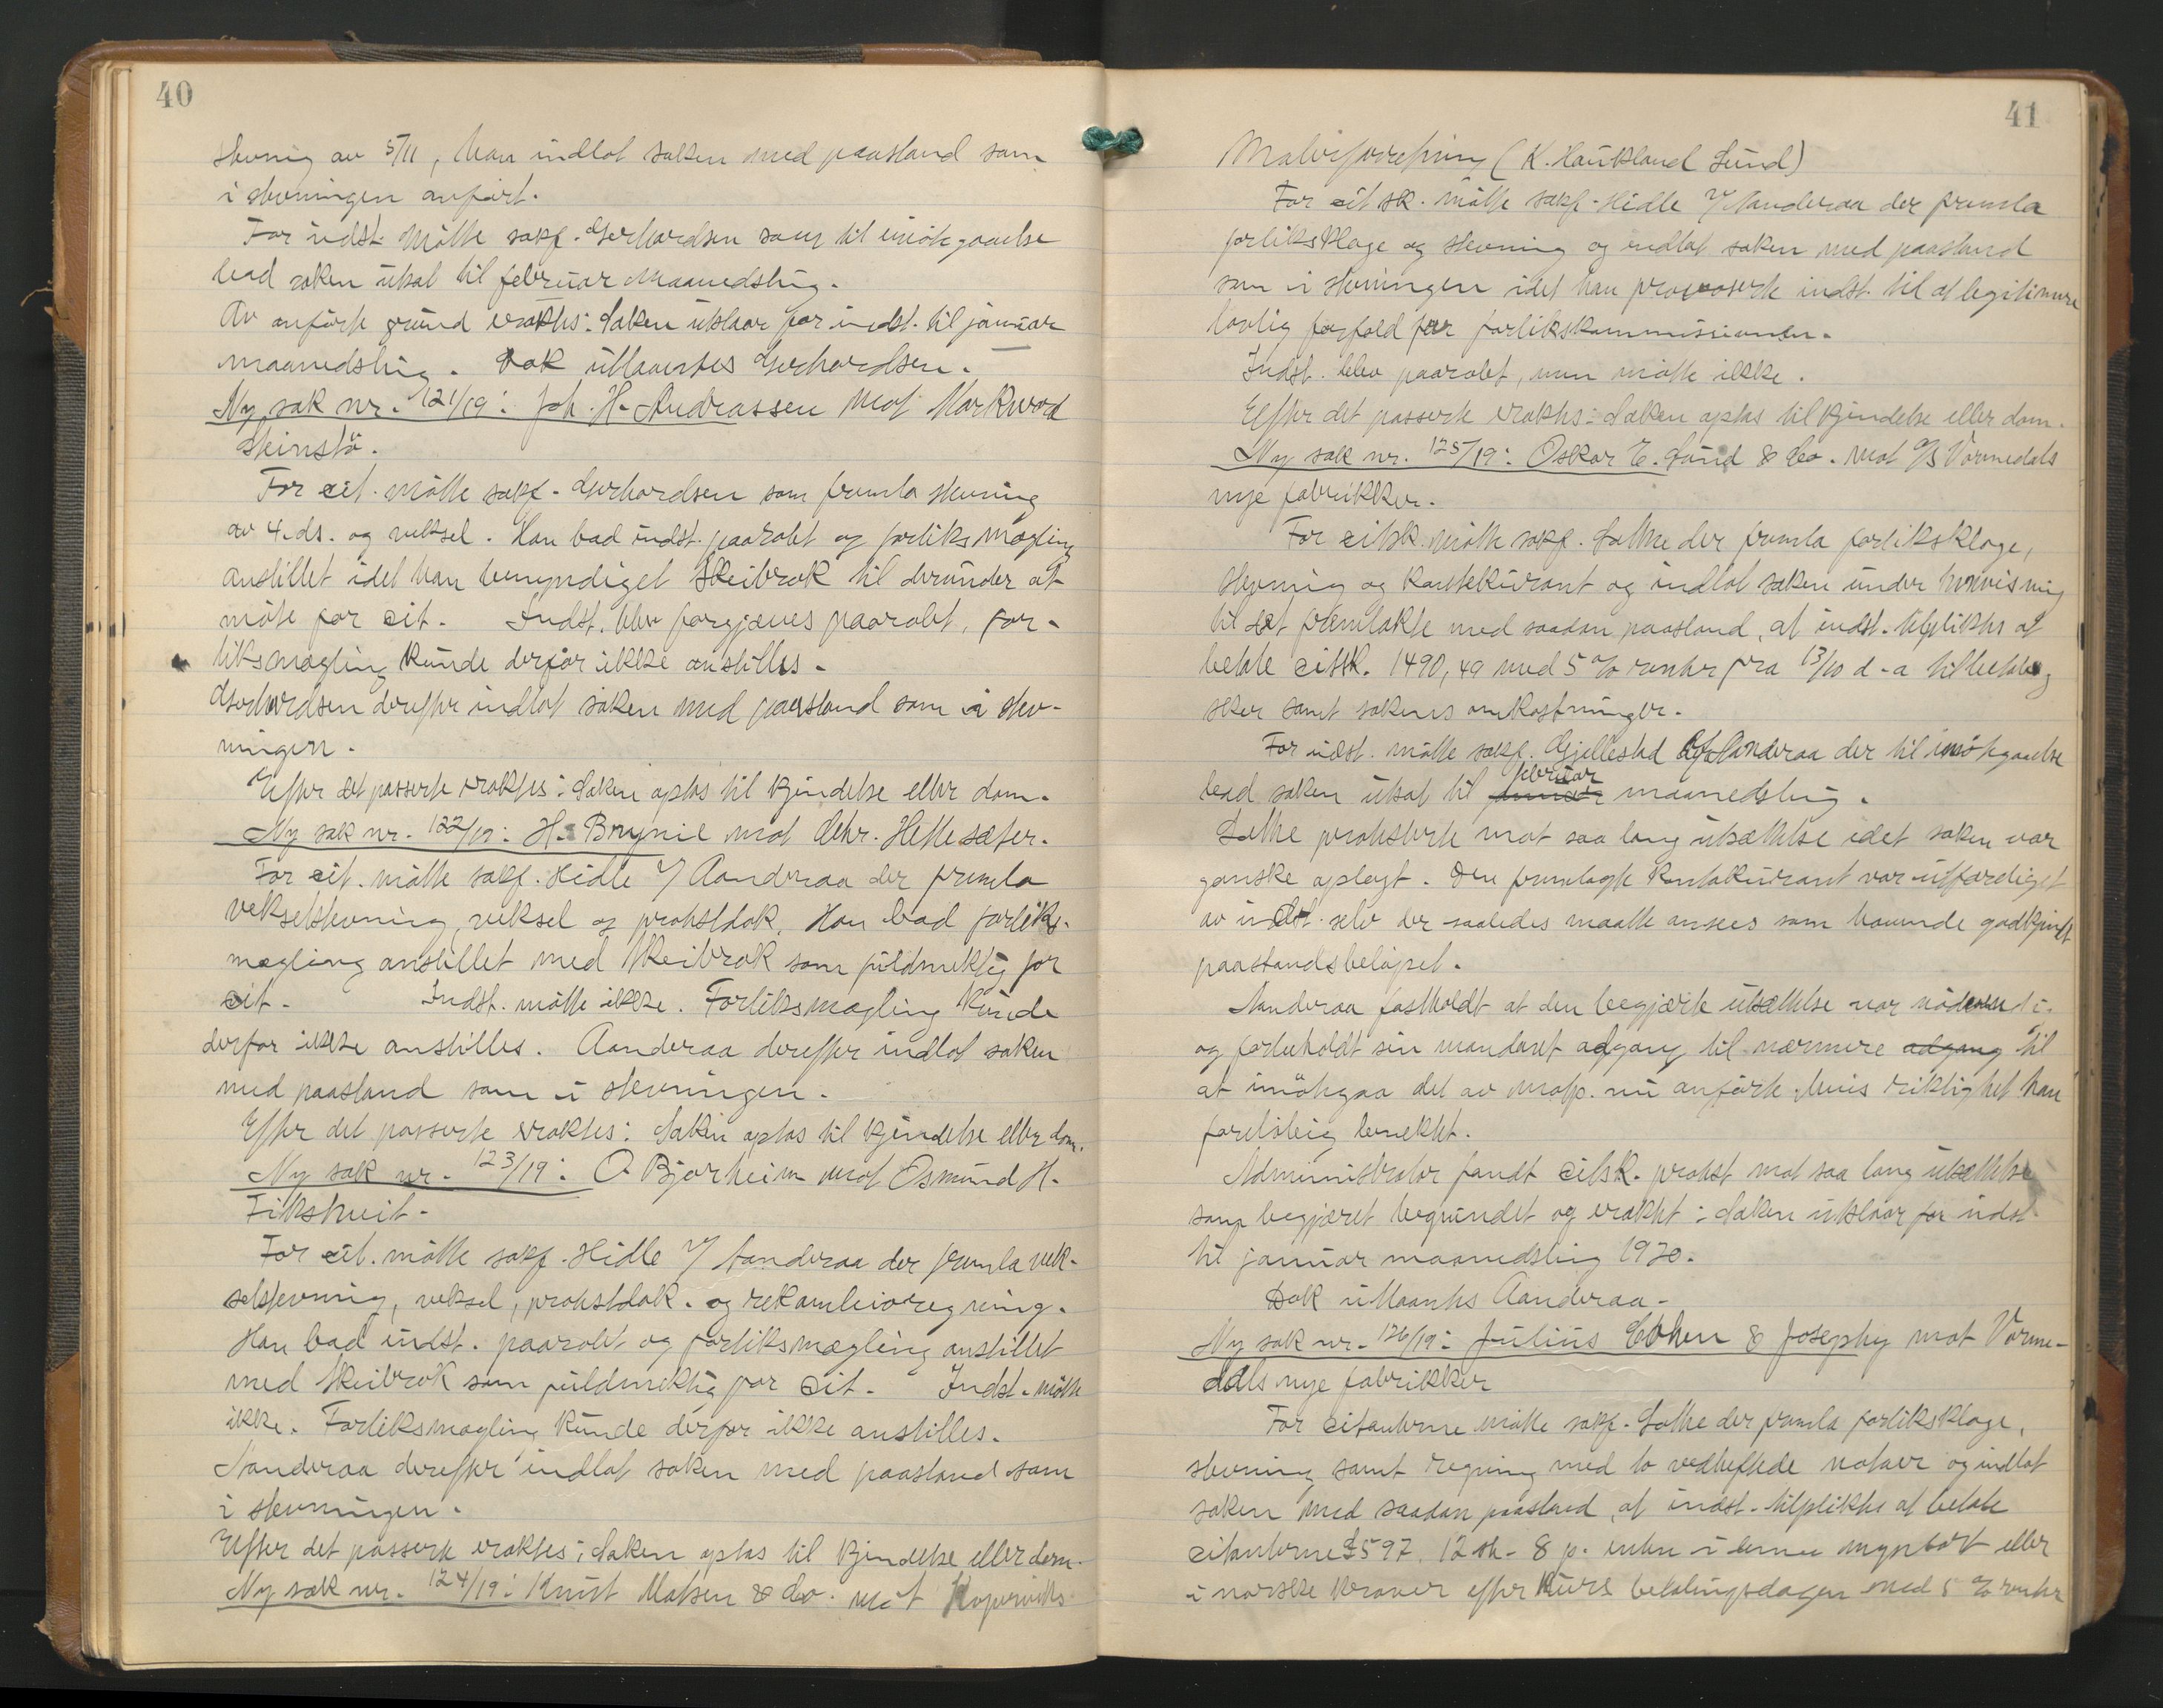 40
stevning av 5/11, han indlot saken med paastand som
i stevningen anført.
For indst. møtte sakf. Gerhardsen som til imøtegaaelse
bad saken utsat til februar maanedsting.
Av anførte grund eraktes: Saken utstaar for indst. til januar
maanedsting. Dok utlaantes Gerhardsen.
Ny sak nr. 121/19: Joh. H. Andreassen mot Markvard
Steinstø.
For cit. møtte sakf. Gerhardsen som fremla stevning
av 4. ds. og veksel. Han bad indst. paaropt og forliksmægling
anstillet idet han bemyndiget Skeibrok til derunder at
møte for cit. Indst. blev forgjæves paaropt, for-
liksmægling kunde derfor ikke anstilles.
Gerhardsen derefter indlot saken med paastand som i stev-
ningen.
Efter det passerte eraktes: Saken optas til kjendelse eller dom.
Ny sak nr. 122/19: H. Brynie mot Chr. Hettesæter.
For cit. møtte sakf. Hidle v/ Aanderaa der fremla
vekselstevning, veksel og protestdok. Han bad forliks-
mægling anstillet med Skeibrok som fuldmektig for
cit. Indst. møtte ikke. Forliksmægling kunde
derfor ikke anstilles. Aanderaa derefter indlot saken
med paastand som i stevningen.
Efter det passerte eraktes: Saken optas til kjendelse eller dom.
Ny sak nr. 123/19: O Bjorheim mot Osmund H.
Fikstveit.
For cit. møtte sakf. Hidle v/ Aanderaa der fremla vek-
selstevning, veksel, protestdok. og rekambioregning.
Han bad indst. paaropt og forliksmægling anstillet
med Skeibrok som fuldmektig for cit. Indst. møtte
ikke. Forliksmægling kunde derfor ikke anstilles.
Aanderaa derefter indlot saken med paastand som
i stevningen.
Efter det passerte eraktes: Saken optas til kjendelse eller dom.
Ny sak nr. 124/19: Knut Matsen & Co. mot Kopervikts
41
Malerforretning (K. Haukland Sund)
For cit sk. møtte sakf. Hidle v/ Aanderaa der fremla
forliksklage og stevning og indlot saken med paastand
som i stevningen idet han provoserte indst. til at legitimere
lovlig forfald for forlikskommissionen.
Indst. blev paaropt, men møtte ikke.
Efter det passerte eraktes: Saken optas til kjendelse eller dom.
Ny sak nr. 125/19: Oskar E. Sund & Co. mot A/S Vormedals
nye fabrikker.
For citsk. møtte sakf. Løthe der fremla forliksklage,
stevning og kontokurant og indlot saken under henvisning
til det fremlakte med saadan paastand, at indst. tilpliktes at
betale citsk. 1490,49 med 5 % renter fra 13/10 d. a til betaling
sker samt sakens omkostninger.
For indst. møtte sakf. Gjellestad v/ Aanderaa der til imøtegaaelse
bad saken utsat til januar februar maanedsting.
Løthe protesterte mot saa lang utsættelse idet saken var
ganske oplagt. Den fremlagte kontokurant var utfærdiget
av indst. selv der saaledes maatte ansees som havende godkjendt
paastandsbeløpet.
Aanderaa fastholdt at den begjærte utsættelse var nødvendi-
og forbeholdt sin mandant adgang til nærmere adgang til
at imøtegaa det av motp. nu anførte hvis riktighet han
foreløbig benektet.
Administrator fandt citsk. protest mot saa lang utsættelse
som begjæret begrundet og eraktet: Saken utstaar for indst.
til januar maanedsting 1920.
Dok utlaantes Aanderaa.
Ny sak nr. 126/19: Julius Cohen & Josephy mot Vorme-
dals nye fabrikker
For citanterne møtte sakf. Løthe der fremla forliksklage,
stevning samt regning med to vedheftede notaer og indlot
saken med saadan paastand, at indst. tilpliktes at betale
citanterne £597. 12 sh. 8 p. enten i denne myntsort eller
i norske kroner efter kurs betalingsdagen med 5 % renter